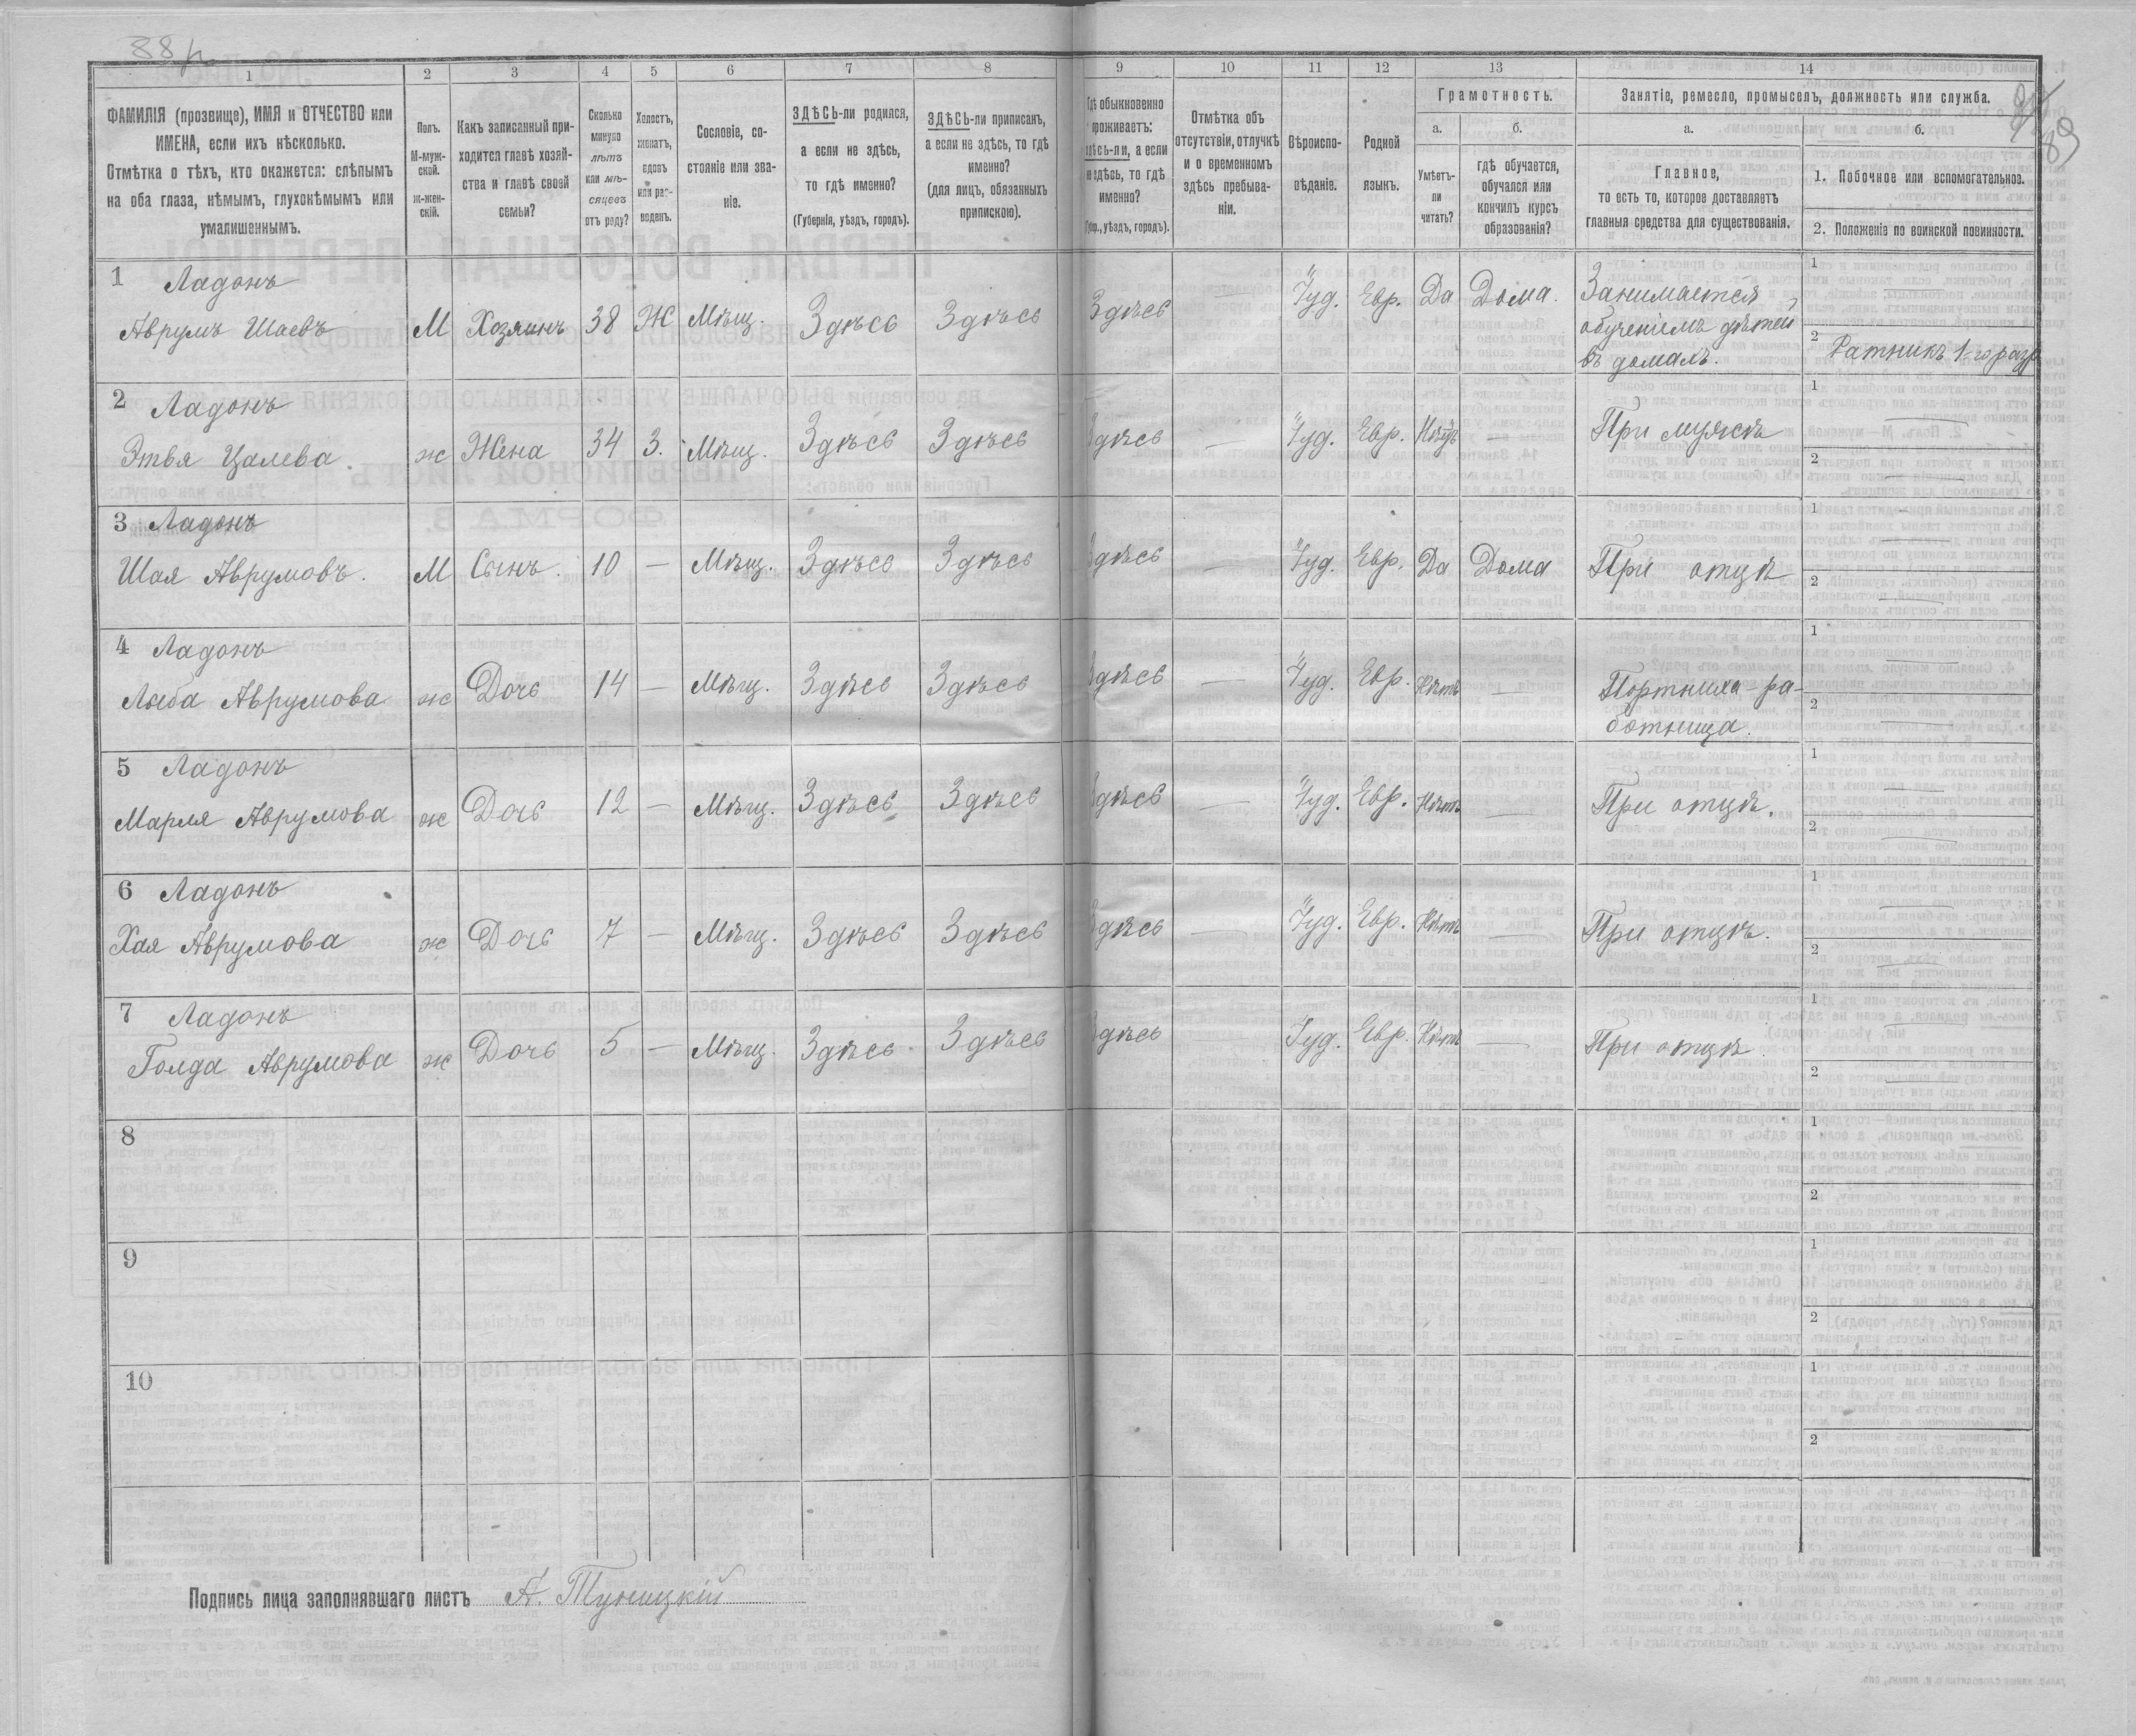 88
1
2
3
4
5
6
7
8
9
10
11
12
13
14
89
ФАМИЛІЯ (прозвище), ИМЯ и ОТЧЕСТВО или
ИМЕНА, если ихъ нѣсколько.
Отмѣтка о тѣхъ, кто окажется: слѣпымъ
на оба глаза, нѣмымъ, глухонѣмымъ или
умалишеннымъ.
Полъ.
М-муж-
ской.
ж-жен-
скій.
Какъ записанный при-
ходится главѣ хозяй-
ства и главѣ своей
семьи?
Сколько
минуло
лѣтъ
или мѣ-
сяцевъ
отъ роду?
Холостъ,
женатъ,
вдовъ
или раз-
веденъ.
Сословіе, со-
стояніе или зва-
ніе.
ЗДѢСЬ-ли родился,
а если не здѣсь,
то гдѣ именно?
(Губернія, уѣздъ, городъ).
ЗДѢСЬ-ли приписанъ,
а если не здѣсь, то гдѣ
именно?
(для лицъ, обязанныхъ
припискою).
Гдѣ обыкновенно
проживаетъ:
здѣсь-ли, а если
не здѣсь, то гдѣ
именно?
(Губер., уѣздъ, городъ).
Отмѣтка объ
отсутствіи, отлучкѣ
и о временномъ
здѣсь пребыва-
ніи.
Вѣроиспо-
вѣданіе.
Родной
языкъ.
Грамотность.
а.
Умѣетъ-
ли
читать?
б.
гдѣ обучается,
обучался или
кончилъ курсъ
образованія?
Занятіе, ремесло, промыселъ, должность или служба.
а.
Главное,
то есть то, которое доставляетъ
главныя средства для существованія.
б.
1. Побочное или вспомогательное.
2. Положеніе по воинской повинности.
1 Ладонъ
Аврумъ Шаевъ М Хозяинъ 38 Ж Мѣщ. Здѣсь Здѣсь Здѣсь — Іуд. Евр. Да Дома. Занимается
обученіемъ дѣтей
въ домахъ.
1
2 Ратникъ 1-го разр
2 Ладонъ
Этвя Цалева ж Жена 34 З. Мѣщ. Здѣсь Здѣсь Здѣсь — Іуд. Евр. Нѣтъ — При мужѣ
1 —
2 —
3 Ладонъ
Шая Аврумовъ. М Сынъ. 10 — Мѣщ. Здѣсь Здѣсь Здѣсь — Іуд. Евр. Да Дома При отцѣ
1 —
2 —
4 Ладонъ
Лыба Аврумова ж Дочь 14 — Мѣщ. Здѣсь Здѣсь Здѣсь — Іуд. Евр. Нѣтъ — Портниха-ра-
ботница.
1 —
2 —
5 Ладонъ
Маря Аврумова ж Дочь 12 — Мѣщ. Здѣсь Здѣсь Здѣсь — Іуд. Евр. Нѣтъ — При отцѣ.
1 —
2 —
6 Ладонъ
Хая Аврумова ж Дочь 7 — Мѣщ. Здѣсь Здѣсь Здѣсь — Іуд. Евр. Нѣтъ — При отцѣ.
1 —
2 —
7 Ладонъ
Голда Аврумова ж Дочь 5 — Мѣщ. Здѣсь Здѣсь Здѣсь — Іуд. Евр. Нѣтъ — При отцѣ.
1 —
2 —
8
1
2
9
1
2
10
1
2
Подпись лица заполнявшаго листъ А. Туницкій